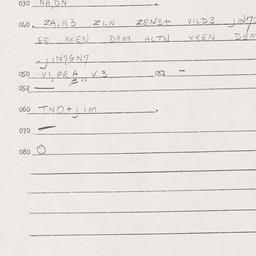 030 NA,DN .
040. ZA,N3 ZI,N ZEN3+ VILD3 jIN77
EQ XKEN D3M ALTN XKEN DEM
-jIN7GN7
050 .VI,PR A,,V3 051 –
052 —
060 TNO+jIm .
070 —
080 O